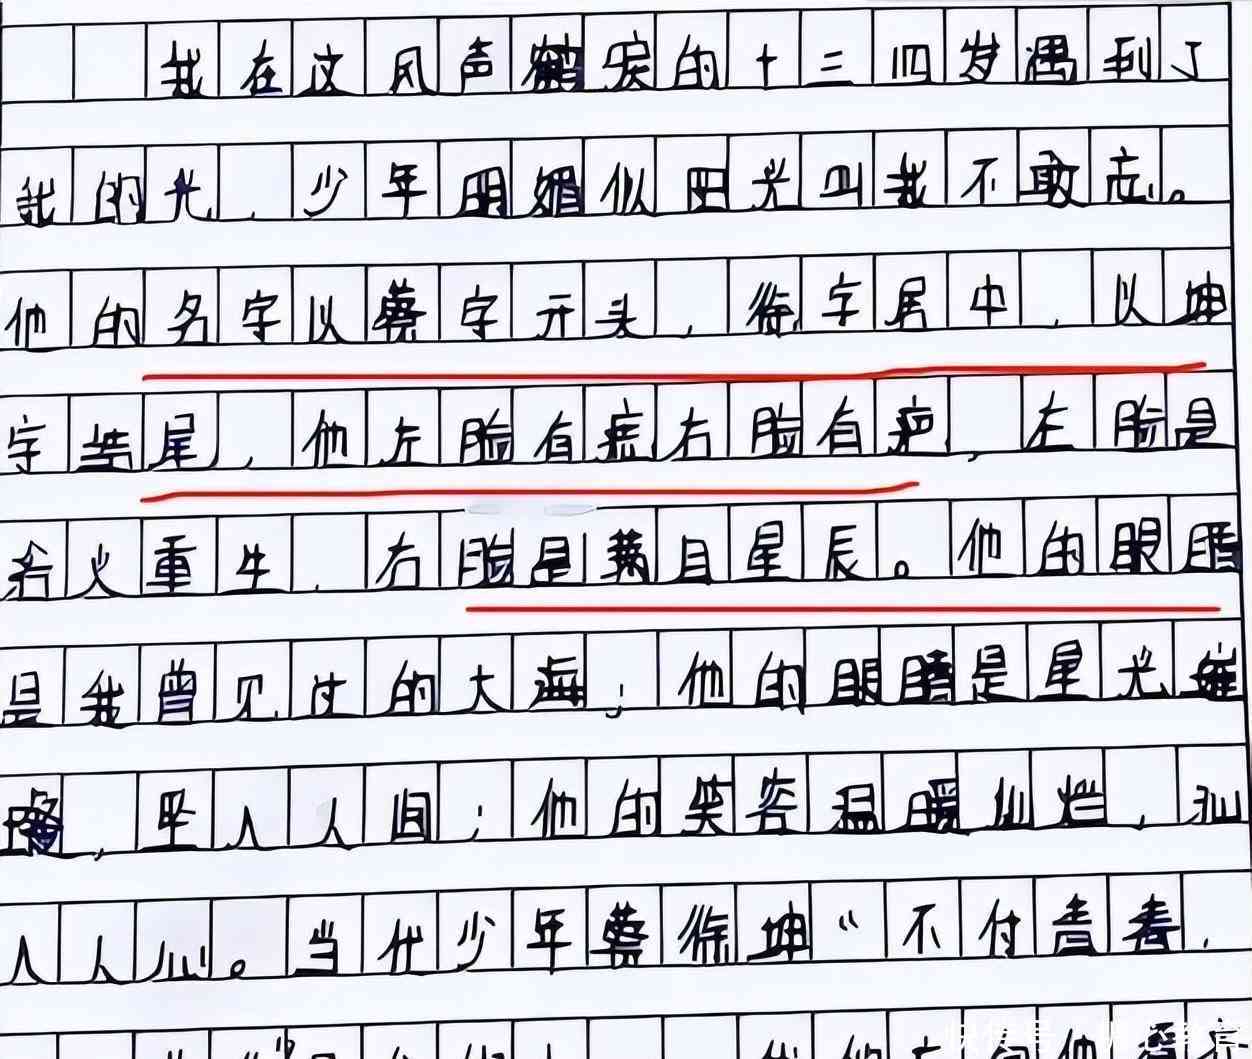 我在这风声鹤唳的十三四岁遇到了
我的光,少年明媚似阳光叫我不敢忘。
他的名字以蔡字开头,徐字居中,以坤
字结尾,他左脸有痣右脸有疤,左脸是
浴火重生,右脸是满目星辰。他的眼睛
是我曾见过的大海;他的眼睛是星光璀
璨,坠入人间;他的笑容温暖灿烂,沁
入人心。当代少年蔡徐坤“不付青春,